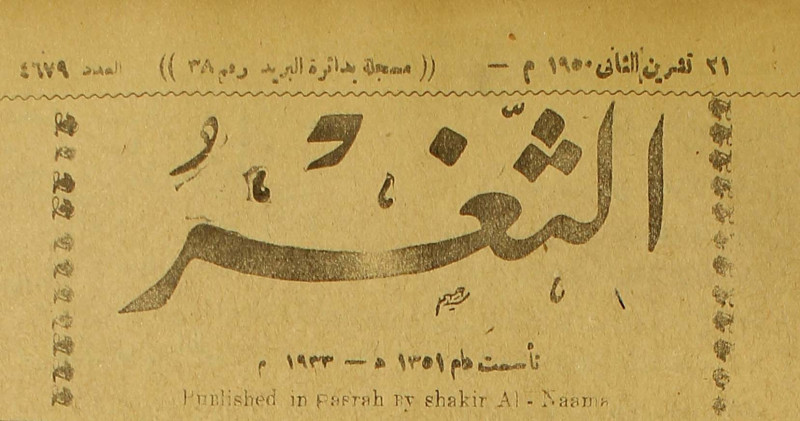 ٢١ تشرين الثاني ١٩٥٠ م — (( مسجلة بدائرة البريد رقم ٣٨ )) العدد ٤٦٧٩
الثَّغْرُ
تأسست عام ١٣٥١ ه — ١٩٣٣ م
Published in Basrah By shakir Al - Naama